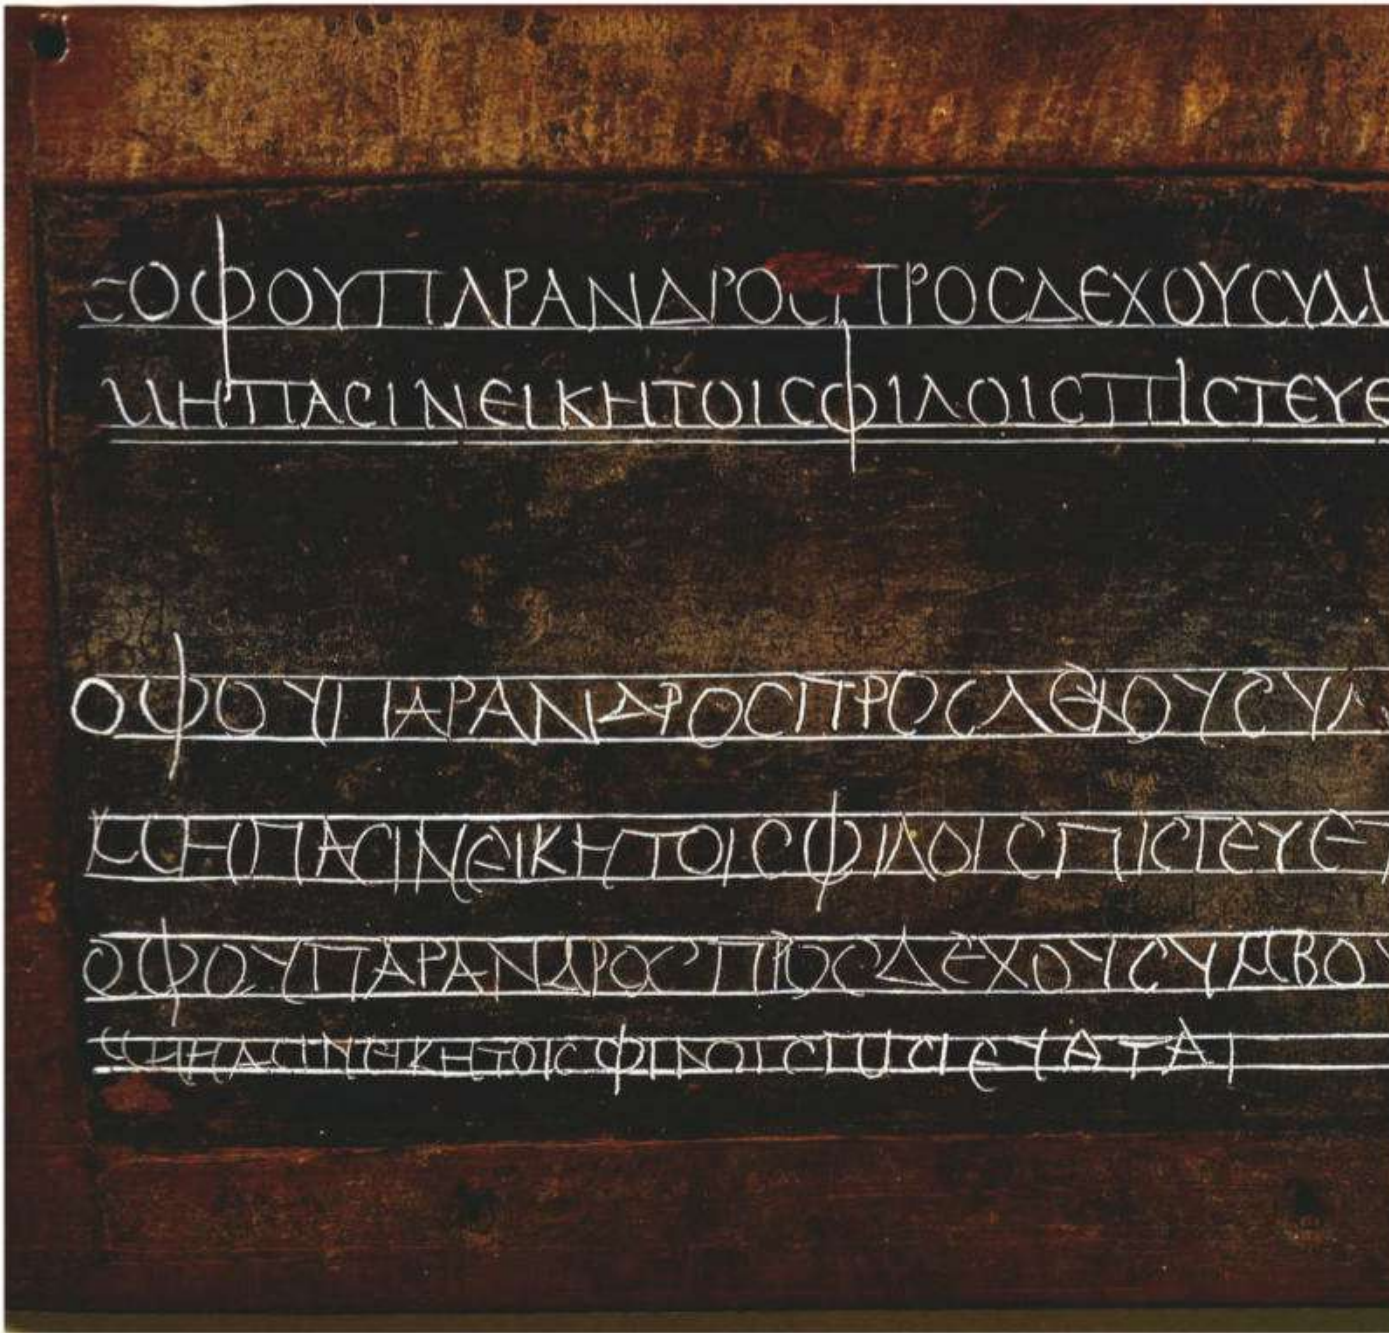 CΟΦΟΥΠΑΡΑΝΔΡΟCΠΡΟCΔΕΧΟΥCΥΜ
ΜΗΠΑCΙΝΕΙΚΗΤΟΙCΦΙΛΟΙCΠΙCΤΕΥΕ
ΟΦΟΥΠΑΡΑΝΔΡΟCΠΡΟCΔΕΧΟΥCΥΜ
ΜΗΠΑCΙΝΕΙΚΗΤΟΙCΦΙΛΟΙCΠΙCΤΕΥΕΤ
ΟΦΟΥΠΑΡΑΝΔΡΟCΠΡΟCΔΕΧΟΥCΥΜΒΟΥ
ΜΗΠΑCΙΝΕΙΚΗΤΟΙCΦΙΛΟΙCΠΙCΤΕΥΑΤΑΙ